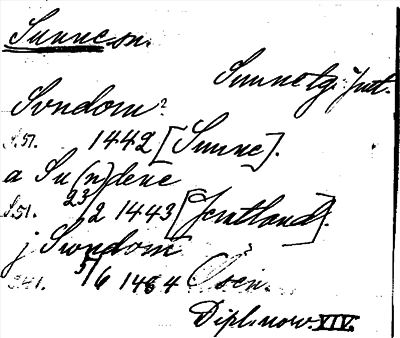 Sunne sn.
Sunne tg. Jmt.
Svndom?
S.51. 1442 [Sunne].
a Su(n)dene
S.51. 23/2 1443 [Jemtland].
j Swndom
S41. 5/6 1464 Osen.
Dipl. norv. XIV.